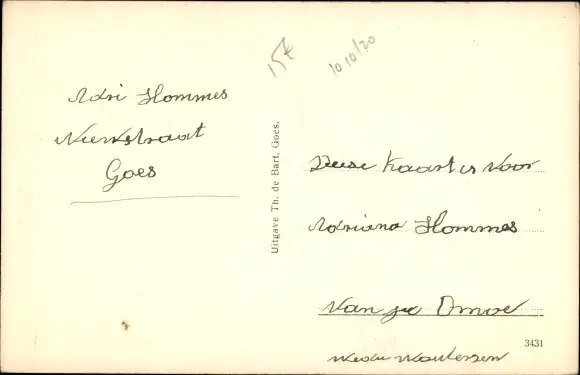 15€
10/10/20
Adri Hommes
Nieuwstraat
Goes
Uitgave Th. de Bart, Goes.
Deese kaart is voor
Adriana Hommes
van je
3431